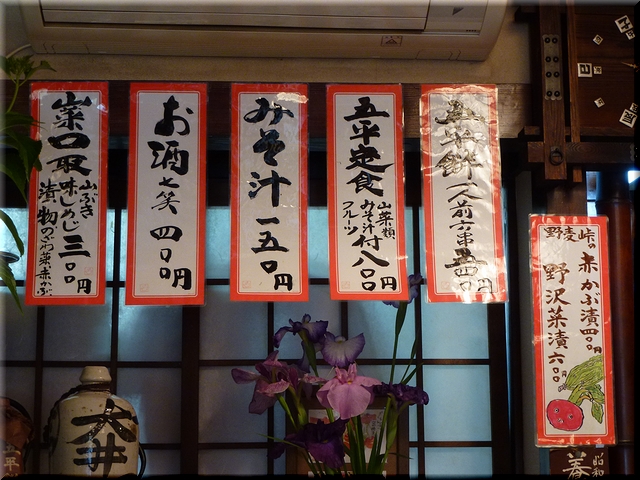 五平餅 一人前 六串 五四〇円
五平定食 山菜類 みそ汁 フルーツ 付 八〇〇円
みそ汁 一五〇円
お酒 七笑 四〇〇円
山菜口取 山ぶき 味しめじ 漬物 三〇〇円
野麦峠の
赤かぶ漬 四〇〇円
野沢菜漬 六〇〇円
大井
昭和
春